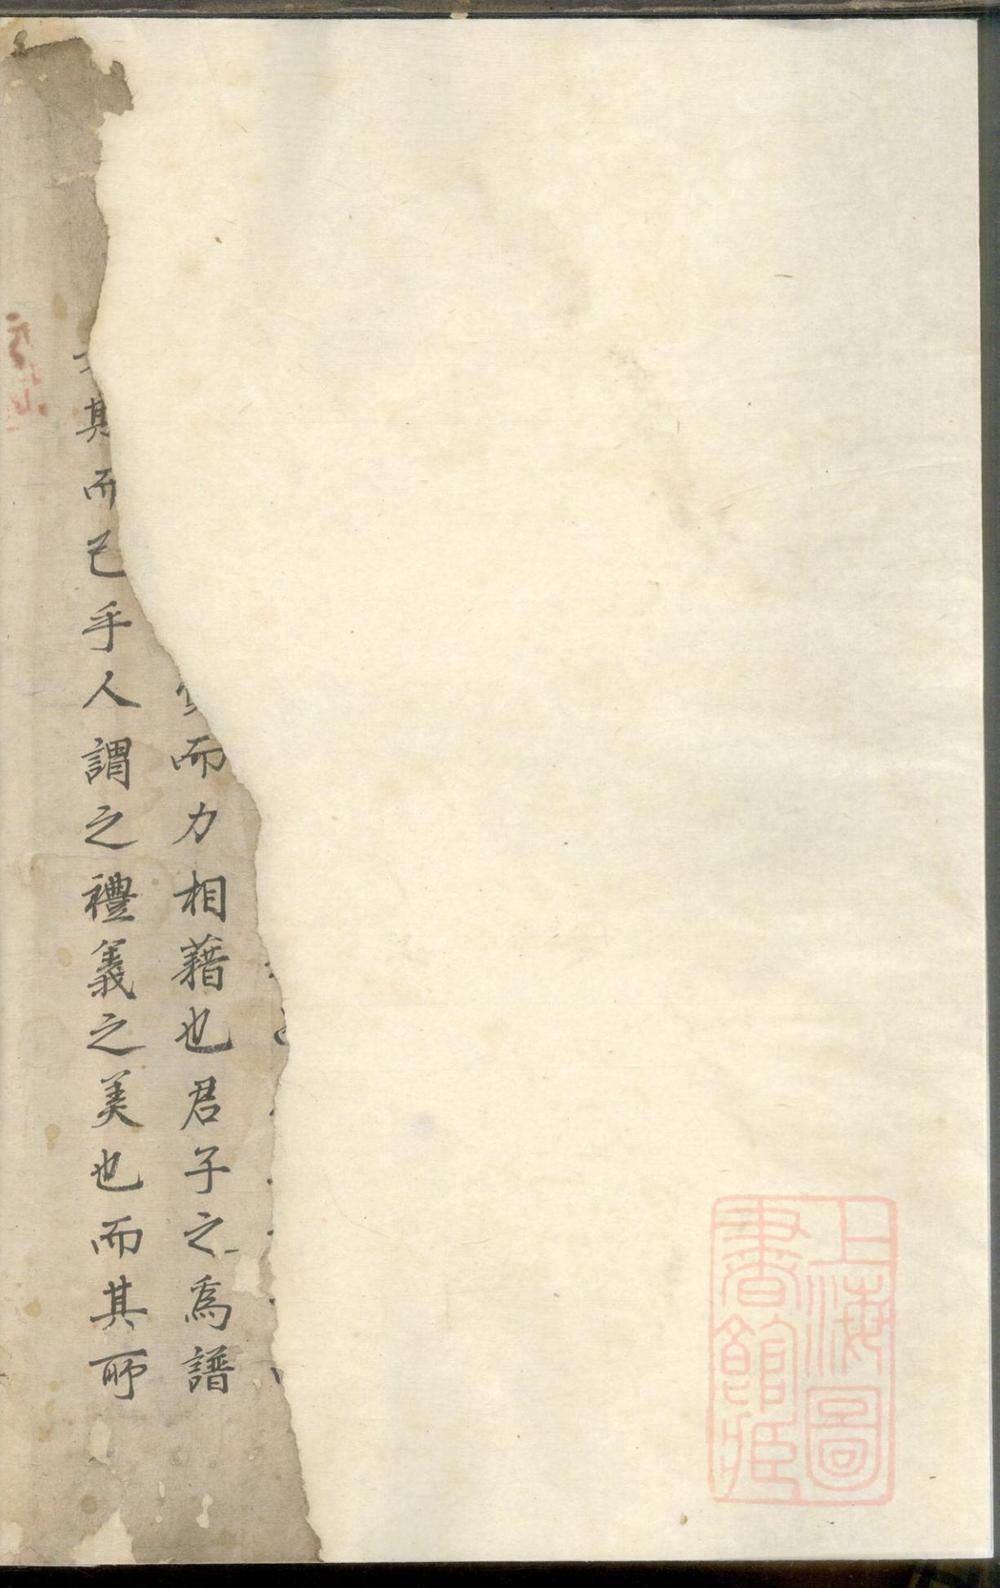 而力相藉也君子之為譜
其而已乎人謂之禮義之美也而其所
上海圖
書館藏